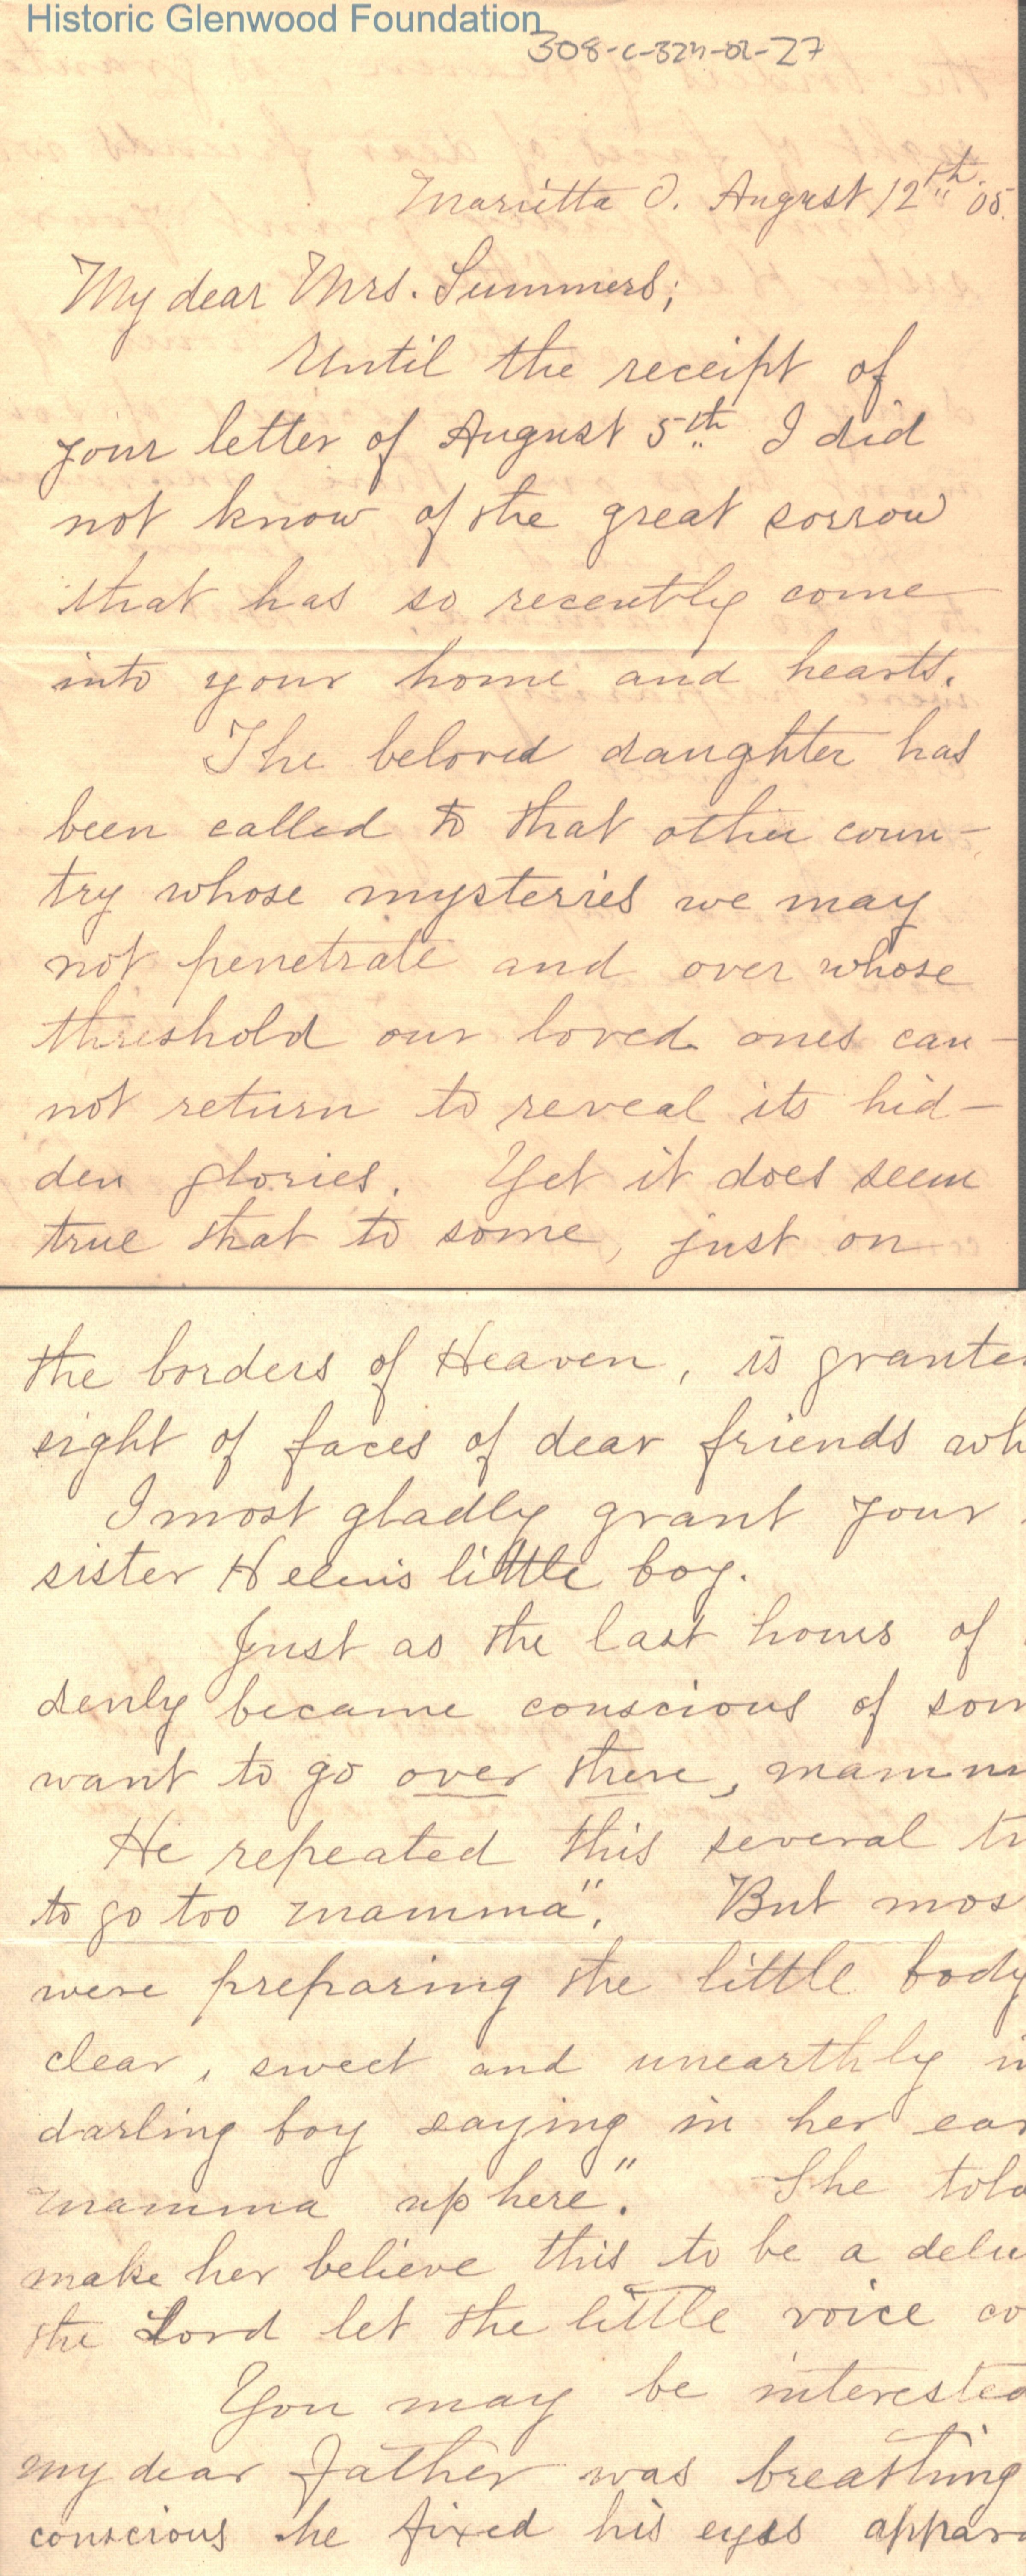 Historic Glenwood Foundation
308-C-324-02-27
Marietta O. August 12th 05.
My dear Mrs. Summers;
Until the receipt of
your letter of August 5th I did
not know of the great sorrow
that has so recently come
into your home and hearts.
The beloved daughter has
been called to that other coun-
try whose mysteries we may
not penetrate and over whose
threshold our loved ones can-
not return to reveal its hid-
den glories. Yet it does seem
true that to some, just on
the borders of Heaven, is grante
sight of faces of dear friends wh
I most gladly grant your
sister Helen's little boy.
Just as the last hours of
denly became conscious of som
want to go over there, mamm
He repeated this several ti
to go too mamma".  But mos
were preparing the little body
clear, sweet and unearthly in
darling boy saying in her ear
mamma up here".  She told
make her believe this to be a delu
the Lord let the little voice co
You may be interested
my dear Father was breathing
conscious he fixed his eyes appar